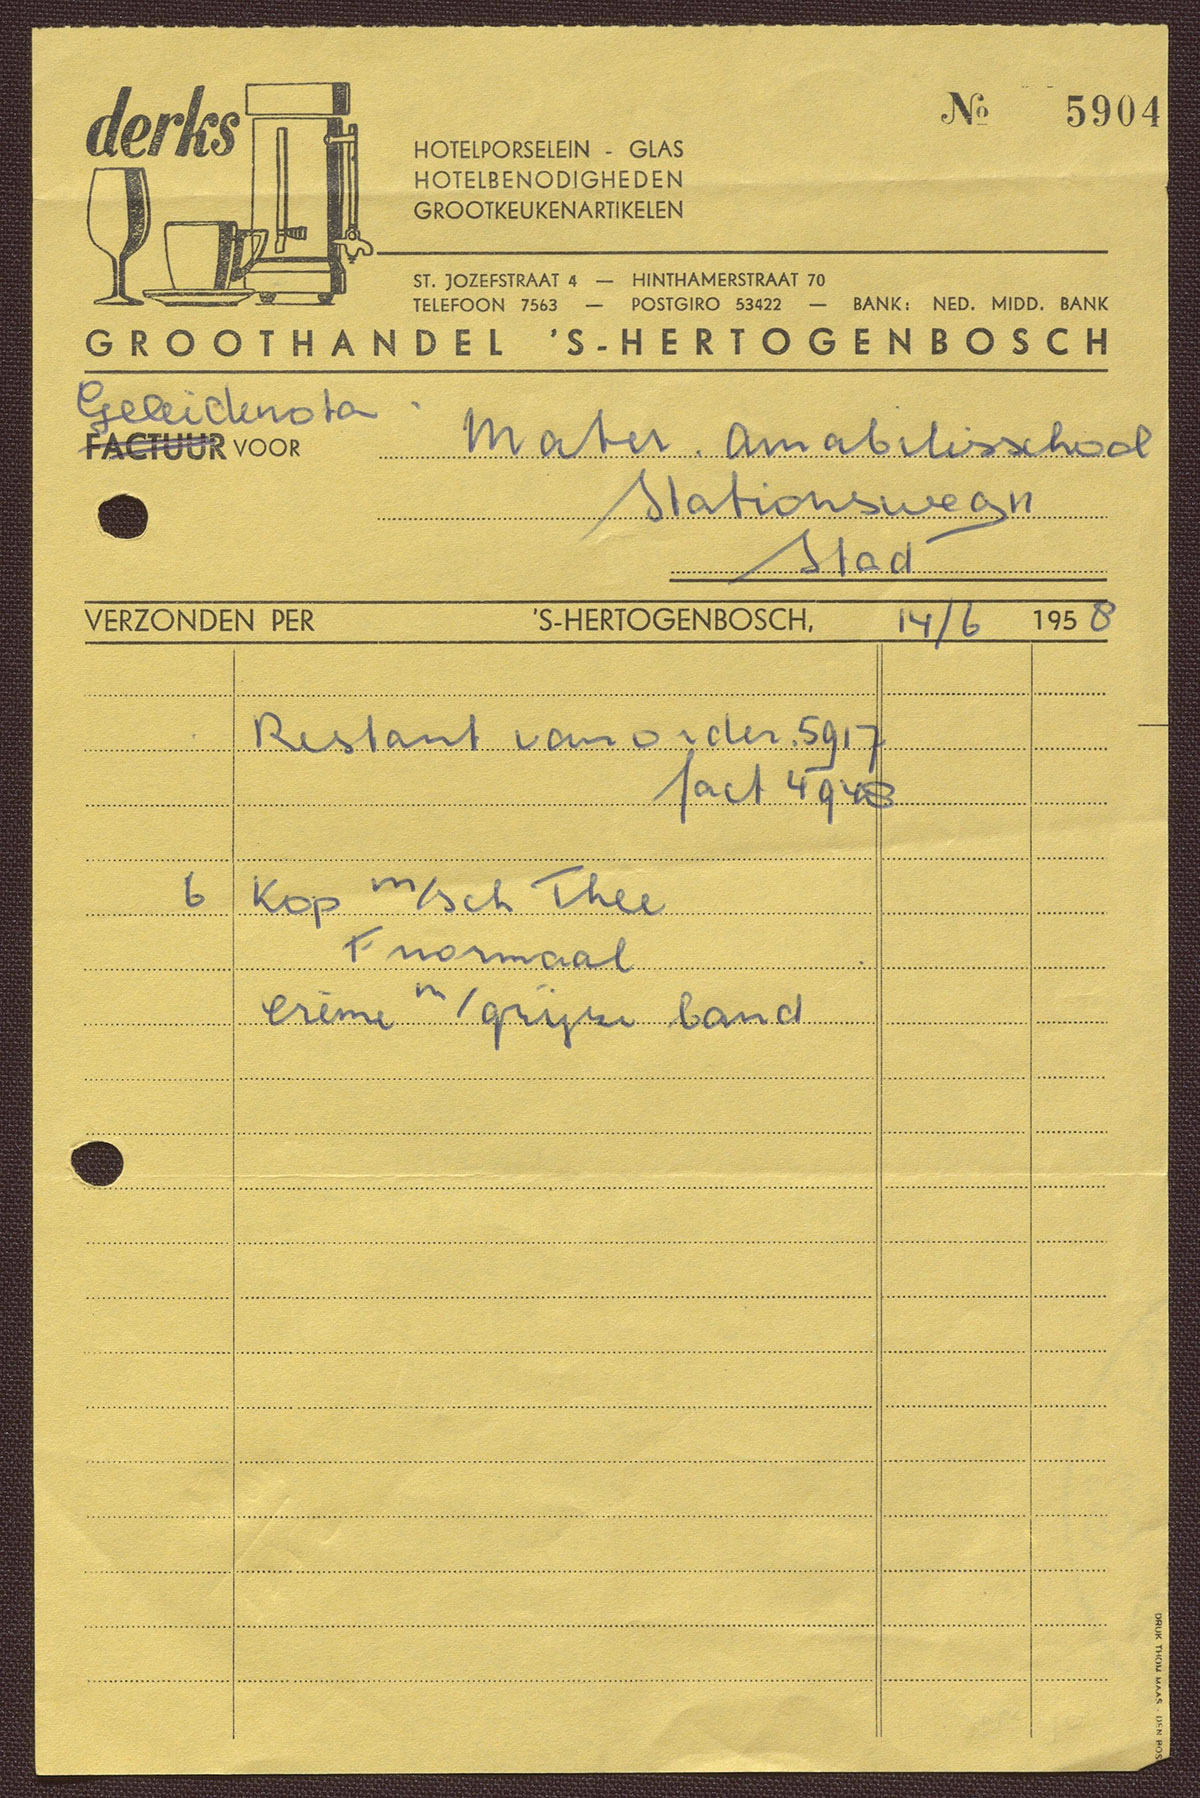 derks
№ 5904
HOTELPORSELEIN - GLAS
HOTELBENODIGHEDEN
GROOTKEUKENARTIKELEN
ST. JOZEFSTRAAT 4 — HINTHAMERSTRAAT 70
TELEFOON 7563 — POSTGIRO 53422 — BANK: NED. MIDD. BANK
GROOTHANDEL 'S-HERTOGENBOSCH
Geleidenota
FACTUUR VOOR Mater. Amabilisschool
Stationsweg 11
Stad
VERZONDEN PER 'S-HERTOGENBOSCH, 14/6 1958
Restant van order. 5917
fact 4948
6 Kop m/sch Thee
F normaal
Crème m/grijze band
DRUK THOM MAAS - DEN BOS